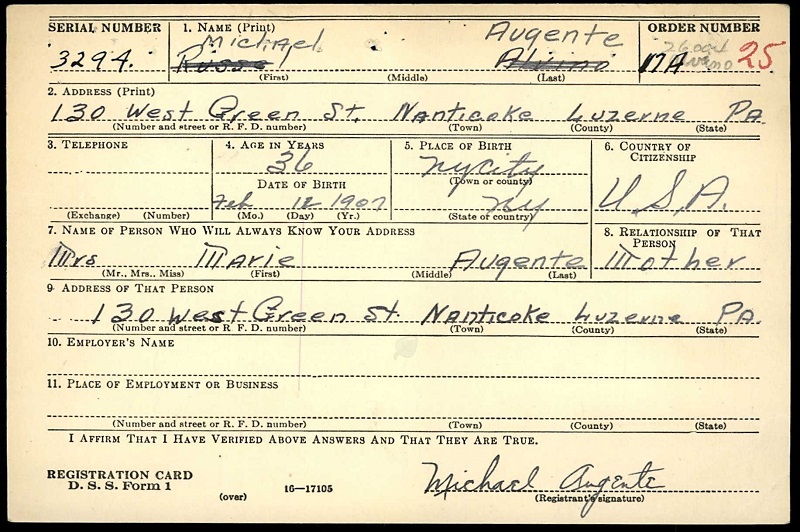 SERIAL NUMBER 1. NAME (Print) ORDER NUMBER
Michael Augente
3294. Russel Alvino 17A 25
(First) (Middle) (Last)
2. ADDRESS (Print)
130 West Green St. Nanticoke Luzerne PA
(Number and street or R. F. D. number) (Town) (County) (State)
3. TELEPHONE 4. AGE IN YEARS 5. PLACE OF BIRTH 6. COUNTRY OF CITIZENSHIP
36 NY City
(Town or county)
DATE OF BIRTH U.S.A.
Feb 12 1907 NY
(Exchange) (Number) (Mo.) (Day) (Yr.) (State or country)
7. NAME OF PERSON WHO WILL ALWAYS KNOW YOUR ADDRESS 8. RELATIONSHIP OF THAT PERSON
Mrs Marie Augente Mother
(Mr., Mrs., Miss) (First) (Middle) (Last)
9. ADDRESS OF THAT PERSON
130 West Green St. Nanticoke Luzerne PA.
(Number and street or R. F. D. number) (Town) (County) (State)
10. EMPLOYER'S NAME
11. PLACE OF EMPLOYMENT OR BUSINESS
(Number and street or R. F. D. number) (Town) (County) (State)
I AFFIRM THAT I HAVE VERIFIED ABOVE ANSWERS AND THAT THEY ARE TRUE.
REGISTRATION CARD
D. S. S. Form 1 (over) 16—17105 Michael Augente
(Registrant's signature)